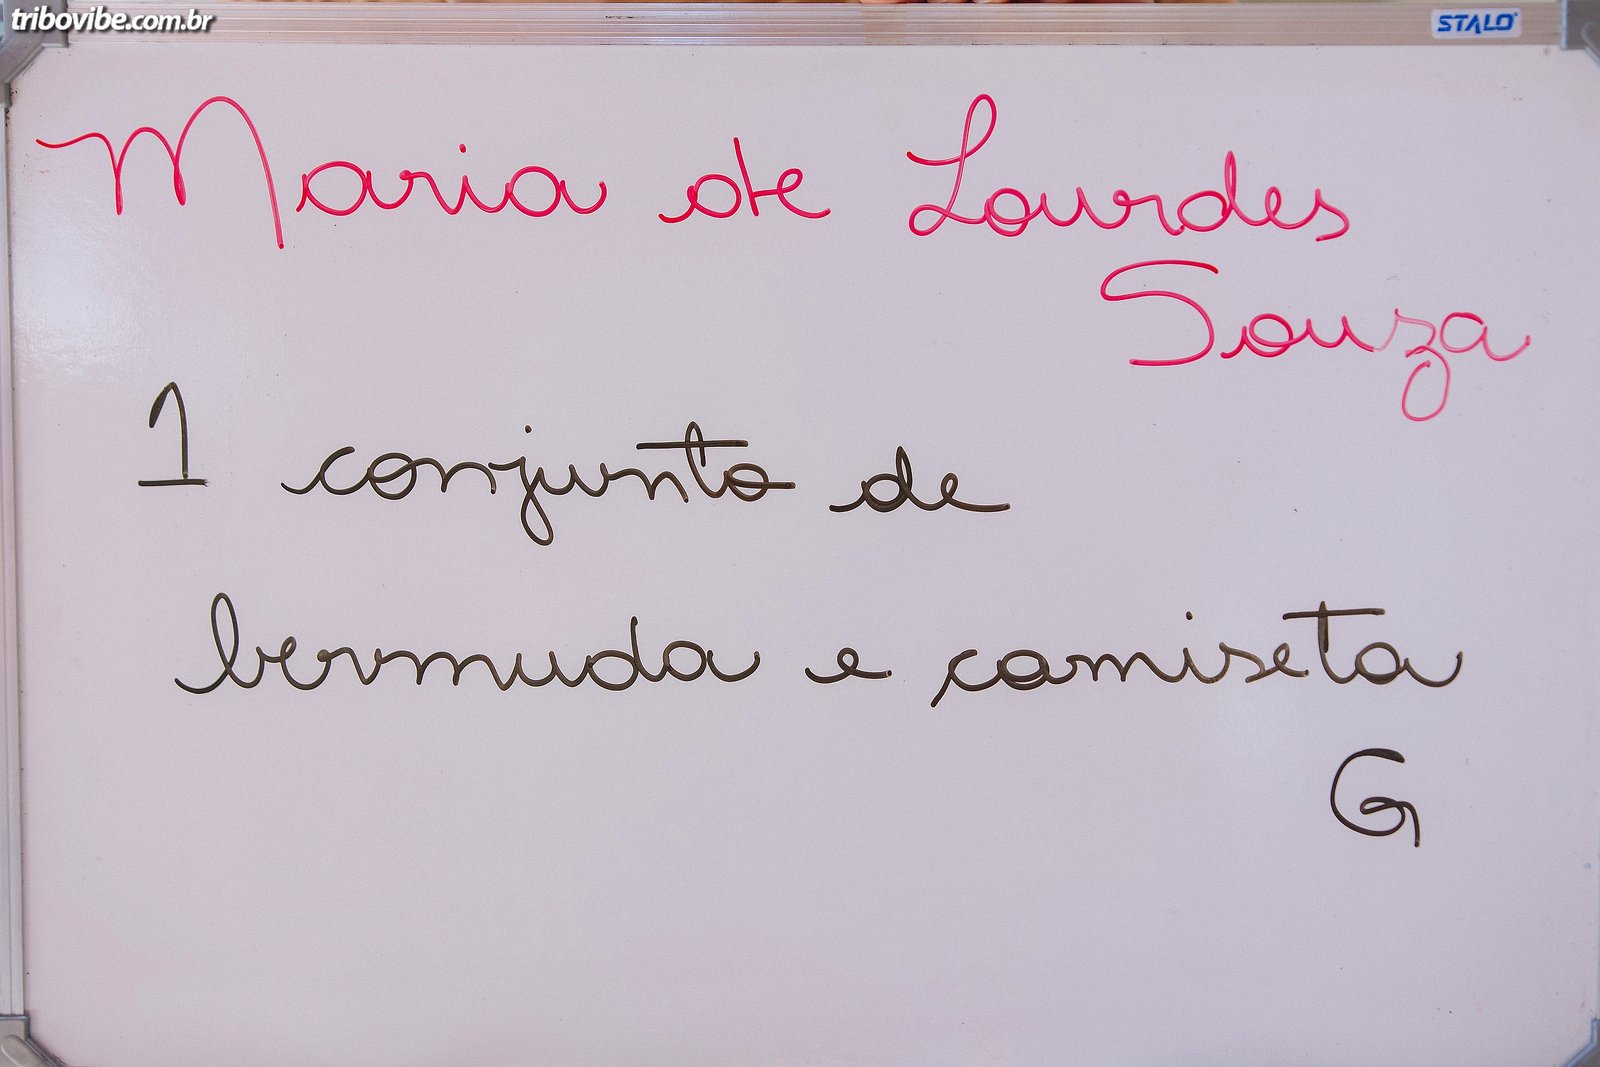 tribovibe.com.br
STALO
Maria de Lourdes
Souza
1 conjunto de
bermuda e camiseta
G